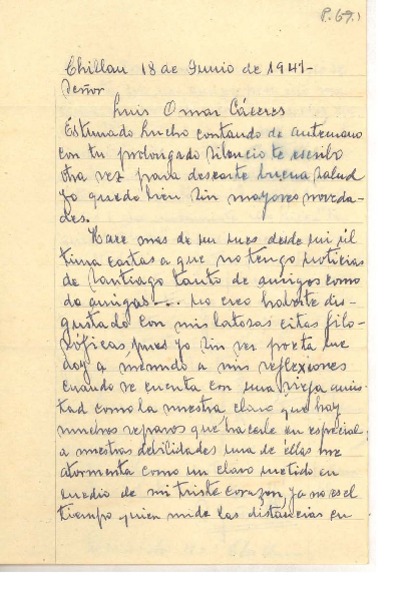 P. 69.)
Chillan 18 de Junio de 1941-
Señor
Luis Omar Cáceres
Estimado Lucho contando de antemano
con tu prolongado silencio te escribo
otra vez para desearte buena salud
yo quedo bien sin mayores noveda-
des.
Hace mas de un mes desde mi úl
tima carta a que no tengo noticias
de Santiago tanto de amigos como
de amigas... no creo haberte dis-
gustado con mis latosas citas filo-
sóficas pues yo sin ser poeta me
doy a menudo a mis reflexiones
cuando se cuenta con una vieja amis-
tad como la nuestra, claro que hay
muchos reparos que hacerle en especial
a nuestras debilidades una de éllas me
atormenta como un clavo metido en
medio de mi triste corazon, ya no es el
tiempo quien mide las distancias en